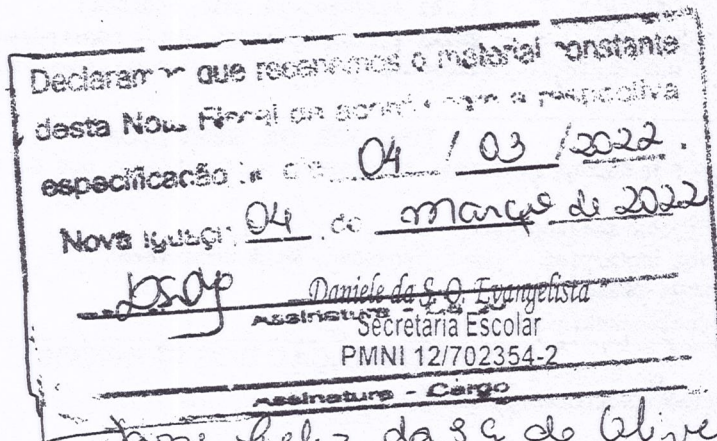 Declaramos que recebemos o material constante
desta Nota Fiscal de acordo com a respectiva
especificação 04 / 03 / 2022.
Nova Iguaçu 04 de março de 2022
Daniele da S. O. Evangelista
Assinatura
Secretaria Escolar
PMNI 12/702354-2
Assinatura - Cargo
da